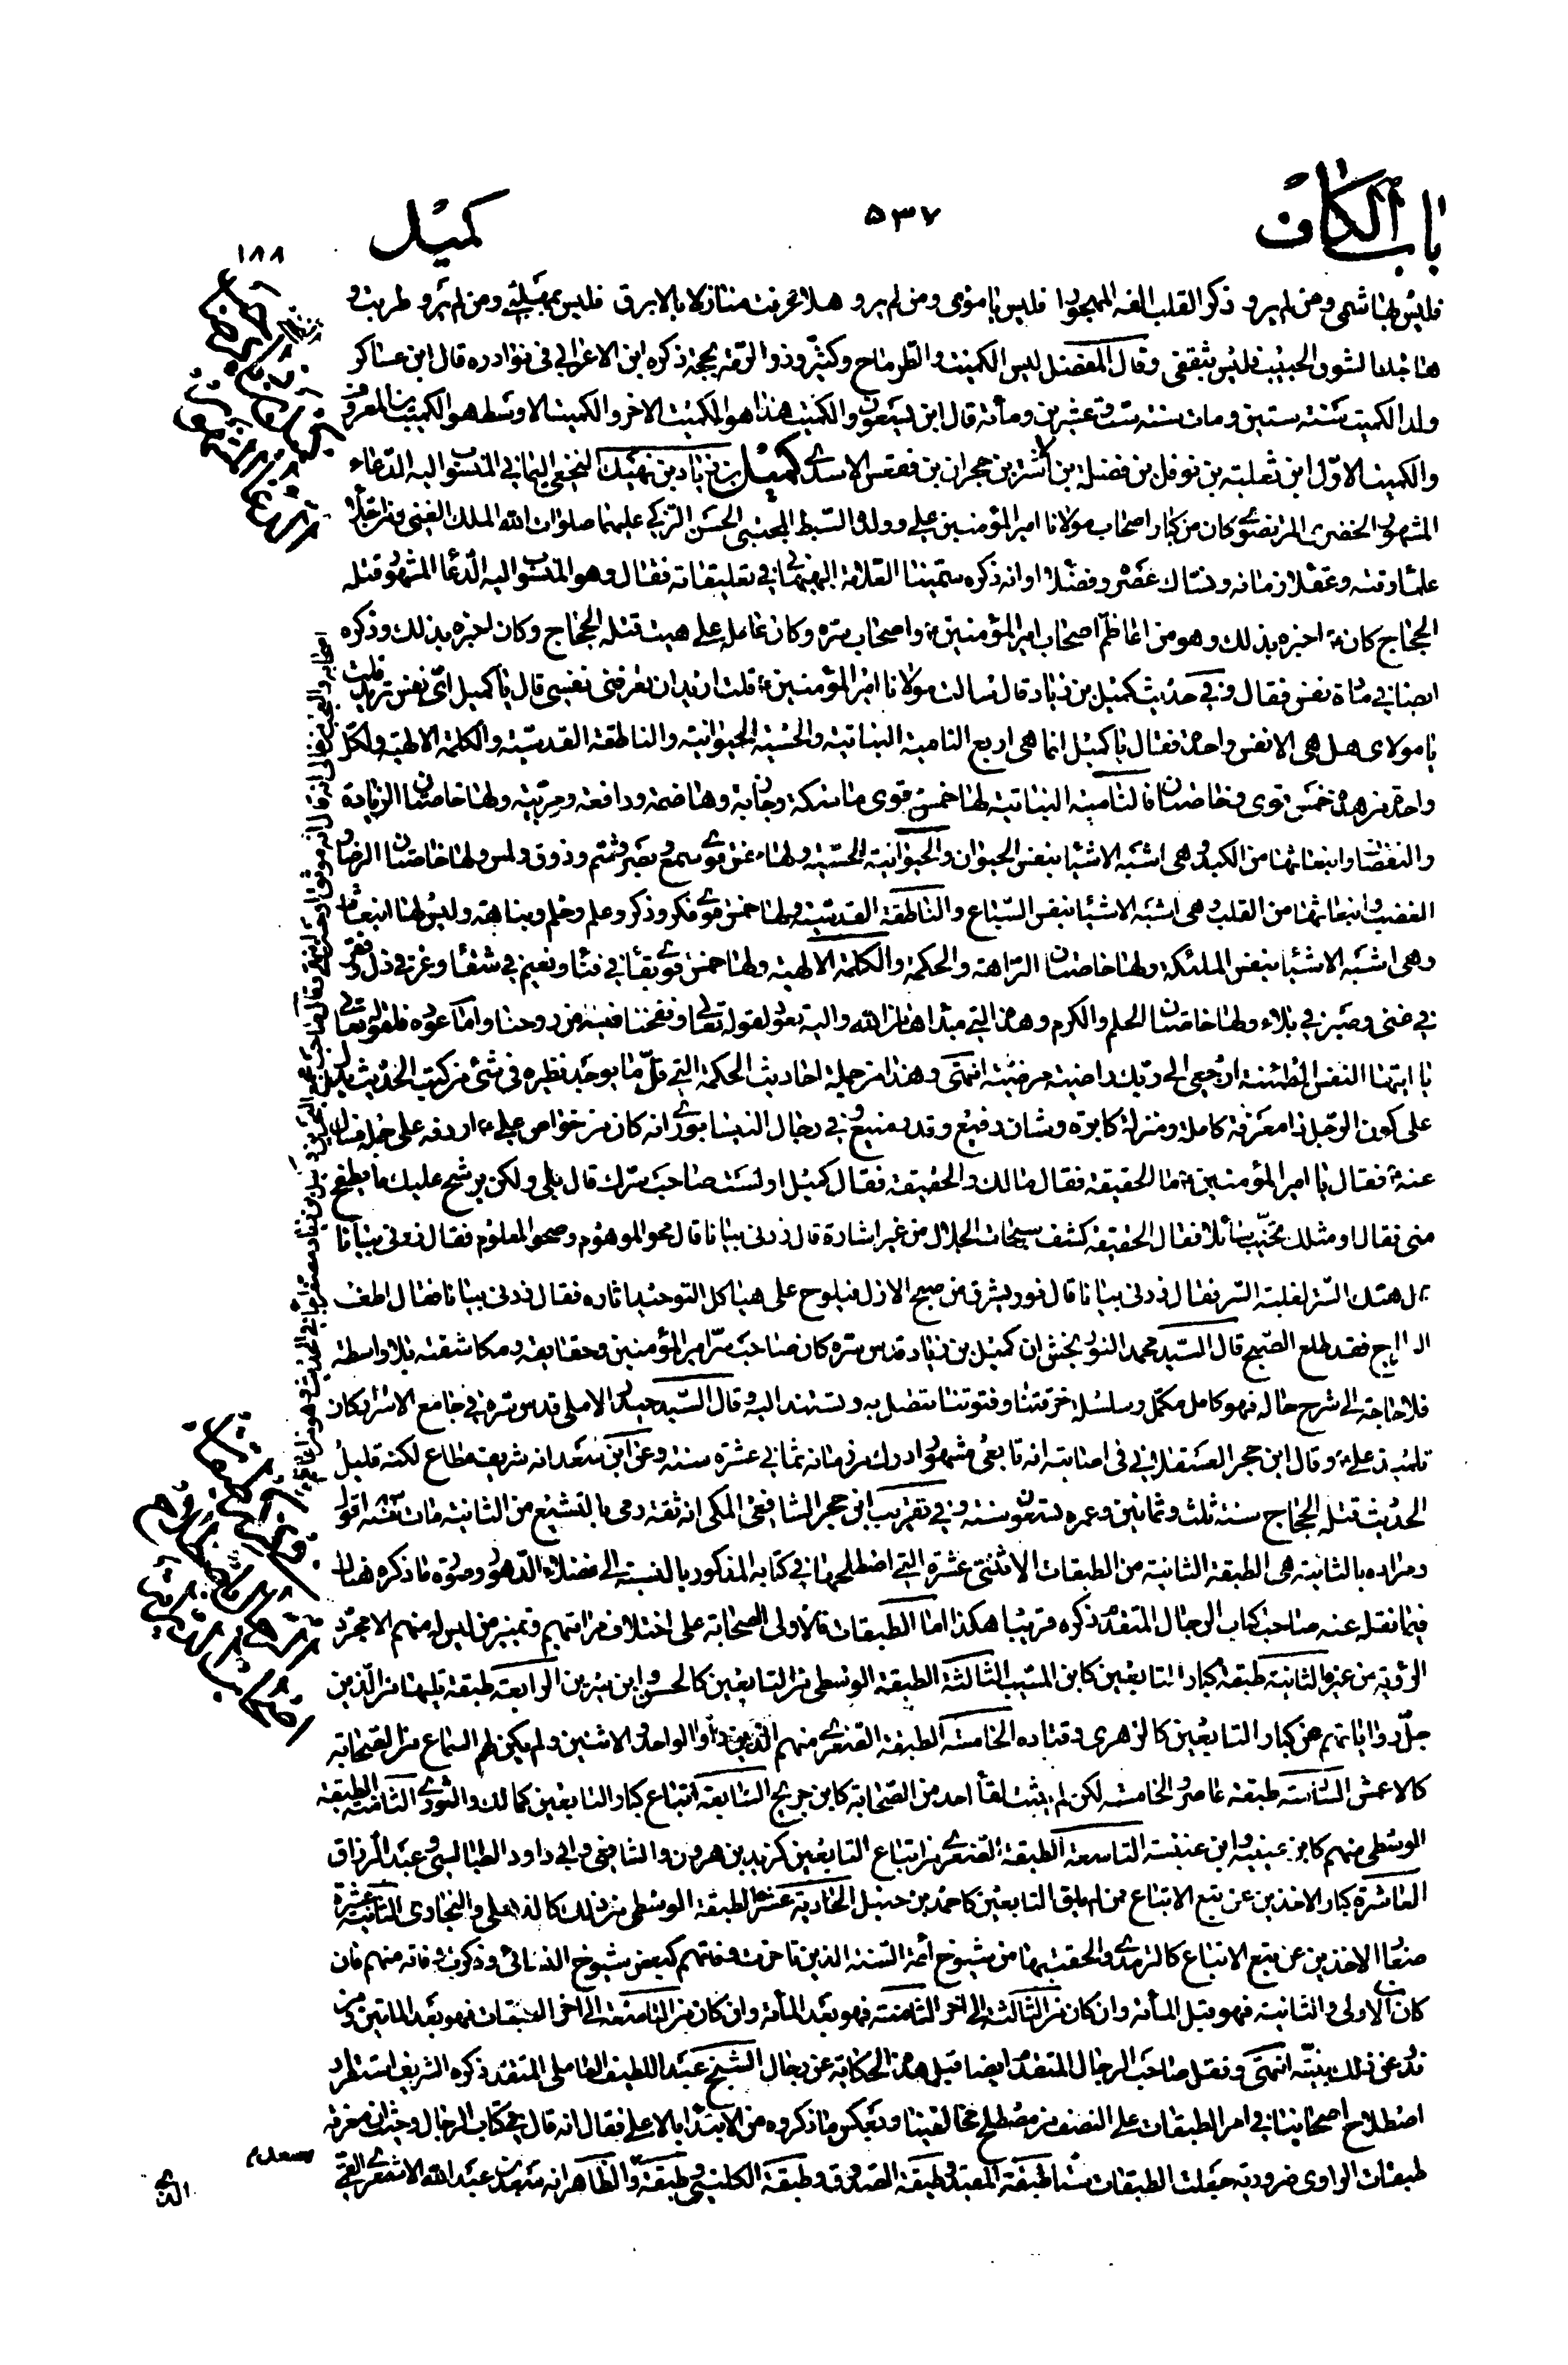 باب الكاف
٥٣٧
كميل
١٨٨
فليس بهاشمى ومن لم يرو ذكر القلب الفه المهجورا فليس باموى ومن لم يرو هلا عرفت منازلا بالابرق فليس بمهلبى ومن لم يرو طربت و
هاجك الشوق الحبيب فليس بثقفى وقال المفضل ليس الكميت والطرماح وكثير وذو الرمة بحجة ذكره ابن الاعرابى فى نوادره قال ابن عساكر
ولد الكميت سنة ستين ومات سنة ست وعشرين ومأته قال ابن يسعون والكميت هذا هو الكميت الاخر والكميت الاوسط هو الكميت بن المعروف
والكميت الاول ابن ثعلبة بن نوفل بن فضلة بن الاشتر بن حجران بن فقعس الاسدى كميل بن زياد بن نهيك النخعى اليمانى المنسوب اليه الدعاء
المشهور الخضرى المرتضوى كان من كبار اصحاب مولانا امير المؤمنين على وولده السبط المجتبى الحسن الزكى عليهما صلوات الله الملك الغنى ومن اجلاء
علماء وقته وعقلاء زمانه ونساك عصره وفضلاء اوانه ذكره سميّنا العلامة البهبهانى فى تعليقاته فقال وهو المنسوب اليه الدعاء المشهور قتله
الحجاج كان ع اخبره بذلك وهو من اعاظم اصحاب امير المؤمنين ع واصحاب سره وكان عامله على هيت قتله الحجاج وكان اخبره بذلك وذكره
ايضا فى مادة نفس فقال وفى حديث كميل بن زياد قال سالت مولانا امير المؤمنين ع قلت اريد ان تعرفنى نفسى قال يا كميل اى نفس تريد قلت
يا مولاى هل هى الا نفس واحدة فقال يا كميل انما هى اربع النامية النباتية والحسية الحيوانية والناطقة القدسية والكلمة الالهية ولكل
واحدة من هذه خمس قوى وخاصتان فالنامية النباتية لها خمس قوى ماسكة وجاذبة وهاضمة ودافعة ومربية ولها خاصتان الزيادة
والنقصان وانبعاثها من الكبد وهى اشبه الاشياء بنفس الحيوان والحيوانية الحسية ولها خمس قوى سمع وبصر وشم وذوق ولمس ولها خاصتان الرضا و
الغضب وانبعاثها من القلب وهى اشبه الاشياء بنفس السباع والناطقة القدسية ولها خمس قوى فكر وذكر وعلم وحلم ونباهة وليس لها انبعاث
وهى اشبه الاشياء بنفس الملئكة ولها خاصتان النزاهة والحكمة والكلمة الالهية ولها خمس قوى بقاء فى فناء ونعيم فى شقاء وعز فى ذل وفقر
فى غنى وصبر فى بلاء ولها خاصتان الحلم والكرم وهذه التى مبداها من الله واليه تعود لقوله تعالى ونفخنا فيه من روحنا واما عوده فلقوله تعالى
يا ايتها النفس المطمئنة ارجعى الى ربك راضية مرضية انتهى وهذا من جملة احاديث الحكمة التى قل ما يوجد نظيره فى شئ من كتب الحديث يدل
على كون الرجل ذا معرفة كاملة ومنزلة كابرة وشان رفيع وقدر منيع وفى رجال النيسابورى انه كان من خواص على ع اردفه على جمل فسال
عنه ع فقال يا امير المؤمنين ع ما الحقيقة فقال مالك والحقيقة فقال كميل اولست صاحب سرك قال بلى ولكن يرشح عليك ما يطفح
منى فقال اومثلك تخيب سائلا فقال الحقيقة كشف سبحات الجلال من غير اشارة قال زدنى بيانا قال محو الموهوم وصحو المعلوم فقال زدنى بيانا
قال هتك الستر لغلبة السر فقال زدنى بيانا قال نور يشرق من صبح الازل فيلوح على هياكل التوحيد اثاره فقال زدنى بيانا فقال اطف
السراج فقد طلع الصبح قال السيد محمد النور بخش ان كميل بن زياد قدس سره كان صاحب سر امير المؤمنين وحقايقه ومكاشفته بلا واسطة
فلا حاجة الى شرح حاله فهو كامل مكمل وسلسلة خرقتنا وفتوتنا تتصل به وتستند اليه وقال السيد حيدر الاملى قدس سره فى جامع الاسرار كان
تلميذ على ع وقال ابن حجر العسقلانى فى اصابته انه تابعى مشهور ادرك من زمانه ثمانى عشرة سنة وعن ابن سعد انه شريف مطاع لكنه قليل
الحديث قتله الحجاج سنة ثلث وثمانين وعمره تسعون سنة وفى تقريب ابن حجر الشافعى المكى انه ثقة رمى بالتشيع من الثانية مات اقول
ومراده بالثانية هى الطبقة الثانية من الطبقات الاثنتى عشرة التى اصطلحها فى كتابه المذكور بالنسبة الى فضلاء الدهور وصورة ما ذكره هناك
فيما نقله عنه صاحب كتاب الرجال المتقدم ذكره قريبا هكذا اما الطبقات فالاولى الصحابة على اختلاف مراتبهم وتمييز من ليس له منهم الا مجرد
الرؤية من غيره الثانية طبقة كبار التابعين كابن المسيب الثالثة الطبقة الوسطى من التابعين كالحسن وابن سيرين الرابعة طبقة تليها من الذين
جل رواياتهم عن كبار التابعين كالزهرى وقتاده الخامسة الطبقة الصغرى منهم الذين راوا الواحد والاثنين ولم يكن لهم السماع من الصحابة
كالاعمش السادسة طبقة عاصروا الخامسة لكن لم يثبت لقاء احد من الصحابة كابن جريج السابعة اتباع كبار التابعين كمالك والثورى الثامنة الطبقة
الوسطى منهم كابن عيينة وابن عنبسة التاسعة الطبقة الصغرى من اتباع التابعين كيزيد بن هرون والشافعى وابى داود الطيالسى وعبد الرزاق
العاشرة كبار الاخذين عن تبع الاتباع ممن لم يلق التابعين كاحمد بن حنبل الحادية عشر الطبقة الوسطى من ذلك كالذهلى والبخارى الثانية عشرة
صغار الاخذين عن تبع الاتباع كالترمذى والحقت بها من شيوخ أئمة الستة الذين تاخرت وفاتهم كبعض شيوخ النسائى وذكرت وفاته منهم فان
كان من الاولى والثانية فهو قبل المأة وان كان من الثالثة الى اخر الثامنة فهو بعد المأة وان كان من التاسعة الى اخر الطبقات فهو بعد الماتين ومن
ندر عن ذلك بينته انتهى ونقل صاحب الرجال المتقدم ايضا قبل هذه الحكاية عن رجال الشيخ عبد اللطيف العاملى المتقدم ذكره الشريف استطراد
اصطلاح اصحابنا فى امر الطبقات على النصف من مصطلح مخالفينا وبعكس ما ذكروه من الابتداء بالاعلى فقال انه قال فى كتاب الرجال وحيث ان معرفة
طبقات الراوى ضرورية جعلت الطبقات ستا طبقة المفيد وطبقة الصدوق وطبقة الكلينى وطبقة والظاهر انه سعد بن عبد الله الاشعرى القمى
سعد